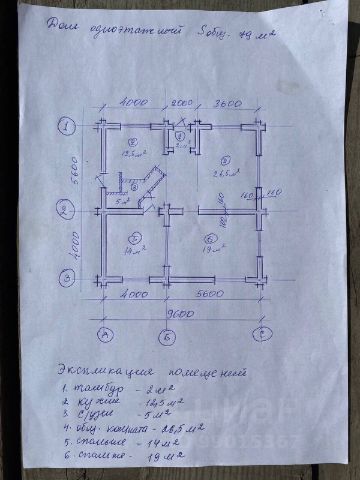 Дом одноэтажный Sобщ. 79 м²
4000 2000 3600
1
2 12,5 м²
1 2 м²
5 26,5 м²
5600
3
5 м²
160 160
2
160 160
4000
14 м²
6 19 м²
3
4000 5600
9600
А Б С
Экспликация помещений
1. тамбур - 2 м²
2 кухня - 12,5 м²
3 с/узел - 5 м²
4. общ. комната - 26,5 м²
5. спальня - 14 м²
6. спальня - 19 м²